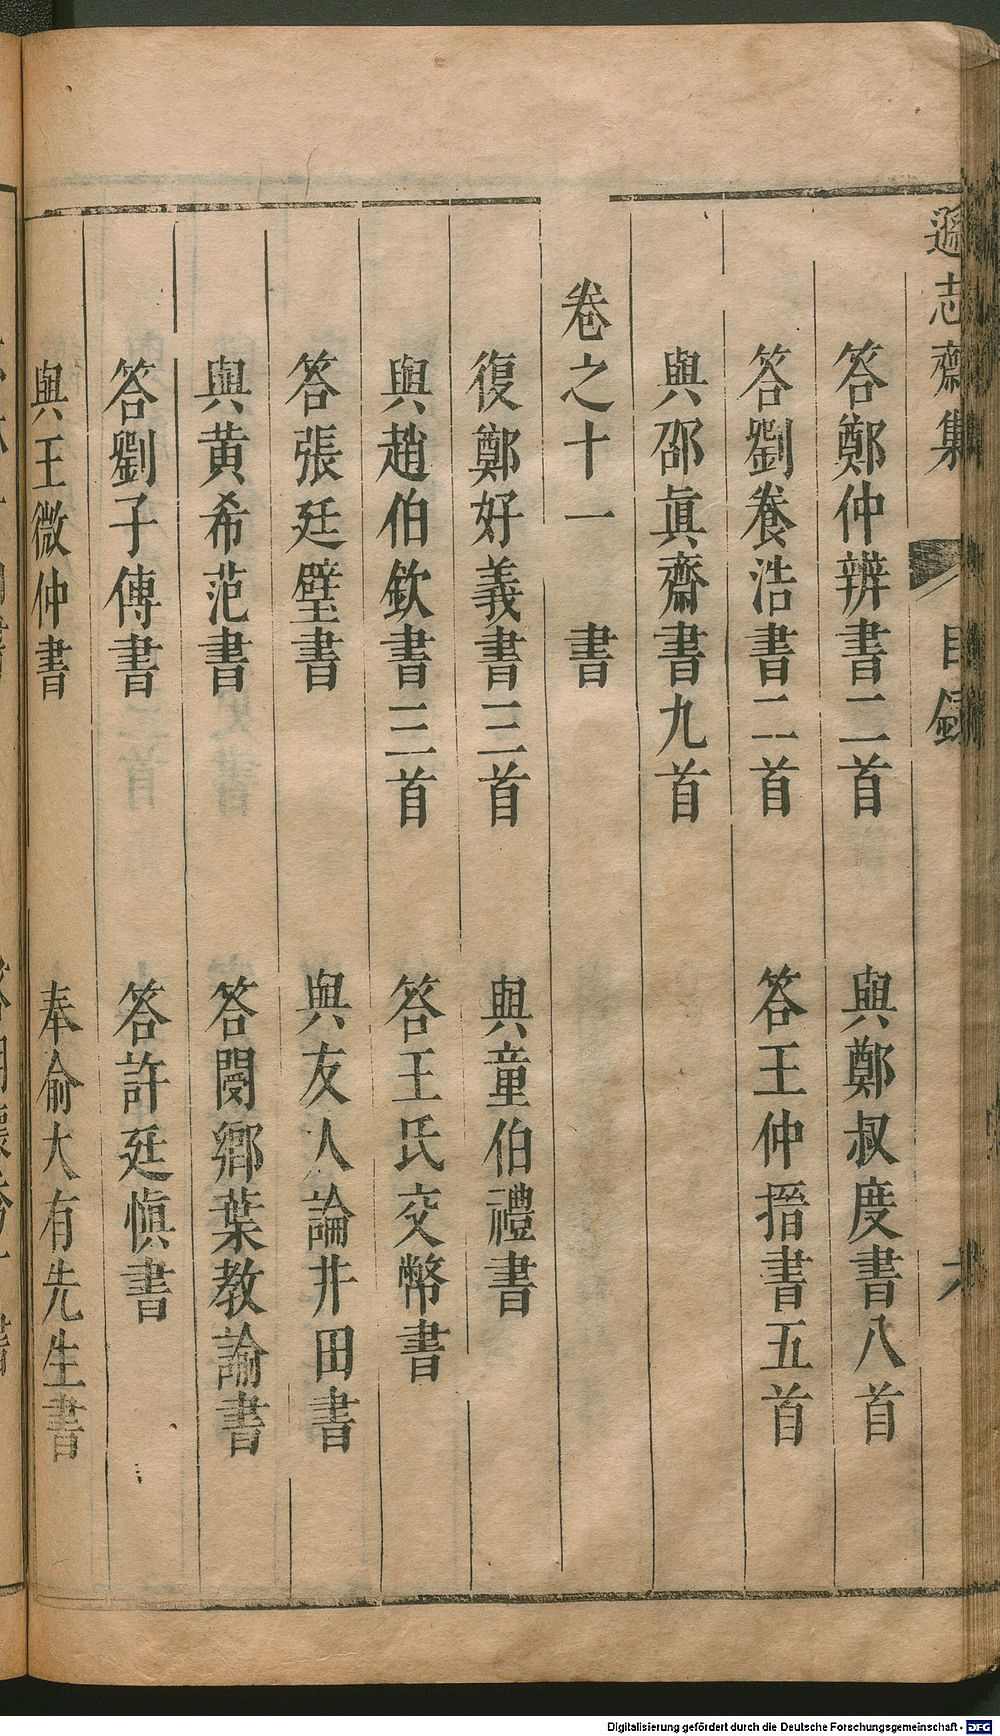 遜志齋集 目錄 六
答鄭仲辨書二首 與鄭叔度書八首
答劉養浩書二首 答王仲搢書五首
與邵真齋書九首
卷之十一 書
復鄭好義書三首 與童伯禮書
與趙伯欽書三首 答王氏交幣書
答張廷璧書 與友人論井田書
與黃希范書 答閿鄉葉教諭書
答劉子傳書 答許廷慎書
與王微仲書 奉俞大有先生書
Digitalisierung gefördert durch die Deutsche Forschungsgemeinschaft - DFG